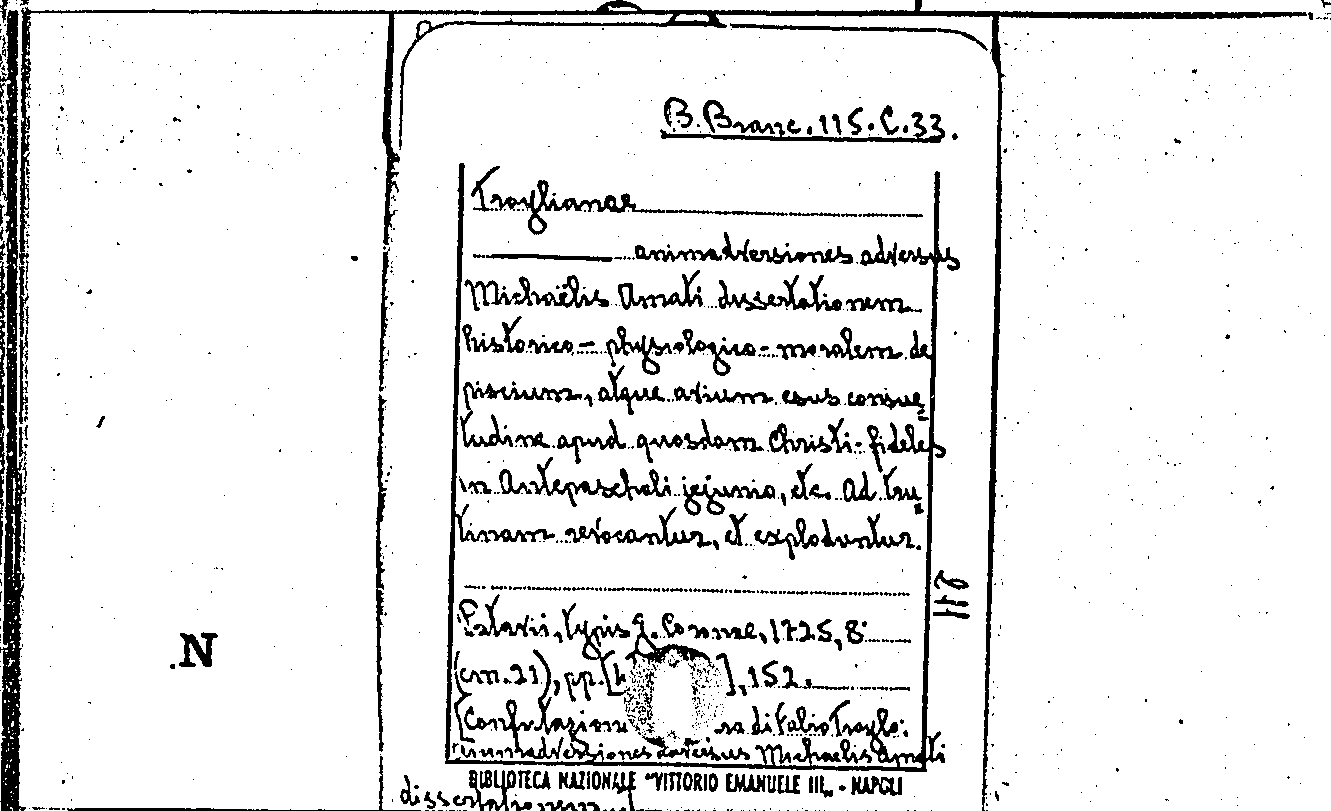 B. Branc. 115. C. 33.
Troylianae
animadversiones adversus
Michaëlis Amati dissertationem
historico - physiologico - moralem de
piscium, atque avium esus consue
tudine apud quosdam Christi-fideles
in Antepaschali jejunio, etc. Ad tru
tinam revocantur, et exploduntur.
Patavii, typis J. Coronae, 1725, 8°
(cm. 21), pp. [ ], 152.
[Confutazione di Fabio Troylo:
Animadversiones adversus Michaelis Amati
BIBLIOTECA NAZIONALE "VITTORIO EMANUELE III" - NAPOLI
dissertationem
N